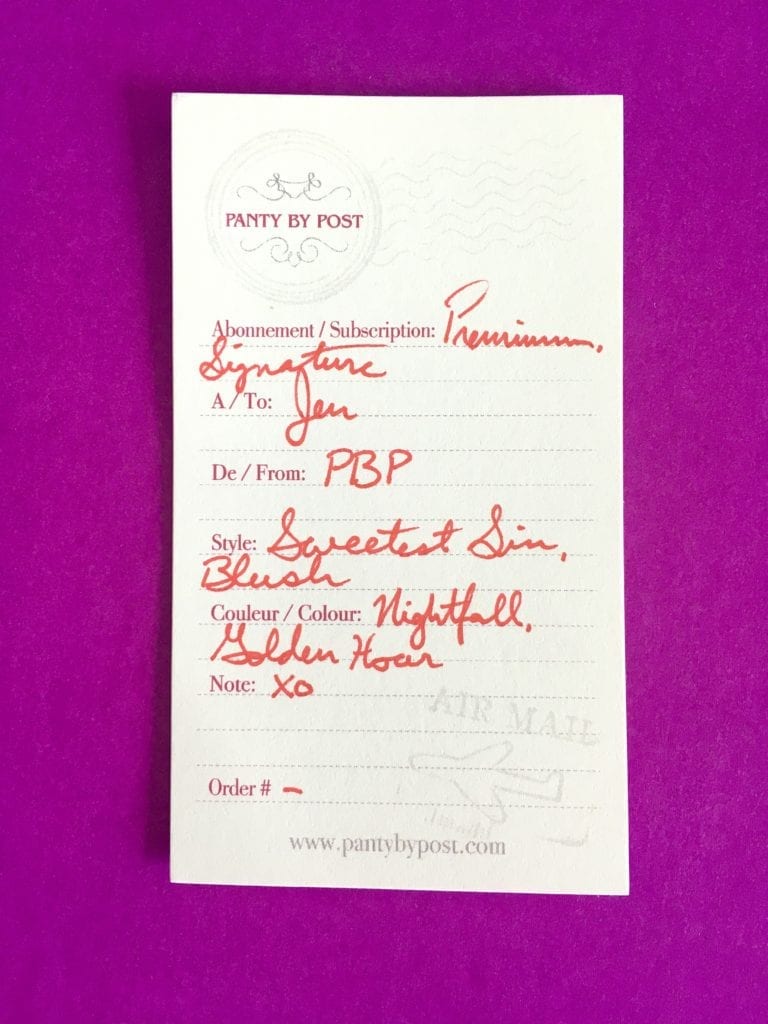 PANTY BY POST
Abonnement / Subscription: Premium,
Signature
A / To: Jen
De / From: PBP
Style: Sweetest Sin,
Blush
Couleur / Colour: Nightfall,
Golden Hour
Note: XO
AIR MAIL
Order # -
www.pantybypost.com